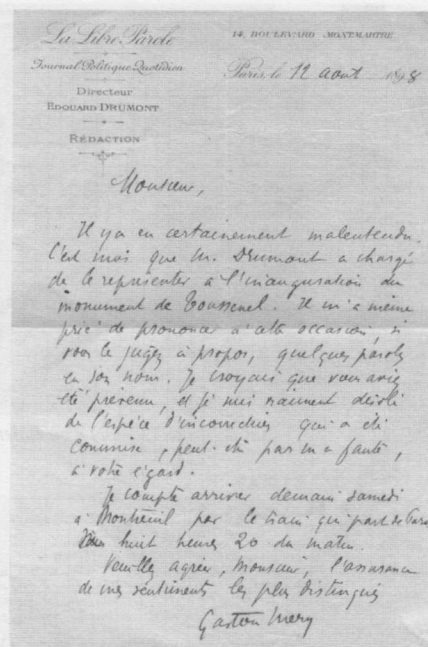 La Libre Parole
14, BOULEVARD MONTMARTRE
Journal Politique Quotidien
Paris, le 12 aout 1898
Directeur
EDOUARD DRUMONT
RÉDACTION
Monsieur,
Il y a eu certainement malentendu.
C'est moi que M. Drumont a chargé
de le représenter à l'inauguration du
monument de Toussenel. Il m'a même
prié de prononcer à cette occasion, si
vous le jugez à propos, quelques paroles
en son nom. Je croyais que vous aviez
été prévenu, et je suis vraiment désolé
de l'espèce d'incorrection qui a été
commise, peut-être par ma faute,
à votre égard.
Je compte arriver demain samedi
à Montreuil par le train qui part de Paris
huit heures 20 du matin.
Veuillez agréer, Monsieur, l'assurance
de mes sentiments les plus distingués
Gaston Mery